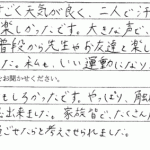 ごく天気が良く、二人で汗
楽しかったです。大きな声で、
普段から先生やお友達と楽し
た。私も、いい運動になり
をお聞かせください。
もしろかったです。やっぱり、触
出来ました。家族皆で、たくさん
過ごせたらと考えさせられました。